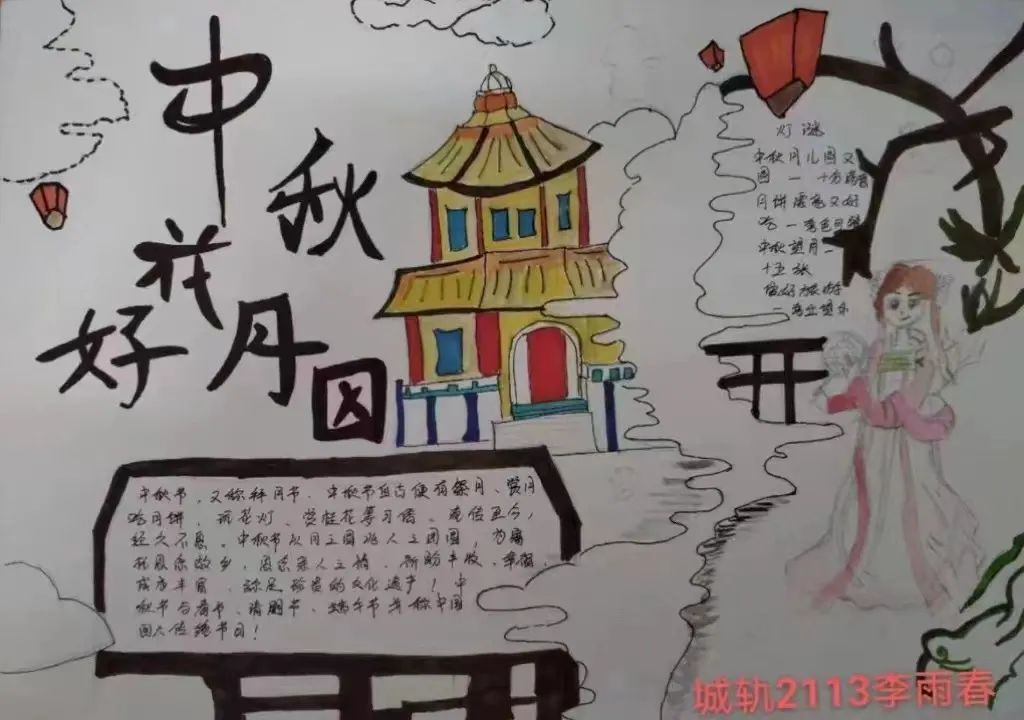 中秋
花好月圆
灯谜
中秋月儿圆又
圆一十分
月饼
吃一秀色可
中秋望月一
十五
旅游
一
中秋节，又称拜月节、中秋节自古便有祭月、赏月
吃月饼、玩花灯、赏桂花等习俗、流传至今，
经久不息。中秋节以月之圆兆人之团圆，为寓
托思念故乡，思念亲人之情、祈盼丰收、幸福、
成为丰富、弥足珍贵的文化遗产！中
秋节与春节、清明节、端午节并称中国
四大传统节日！
城轨2113李雨春